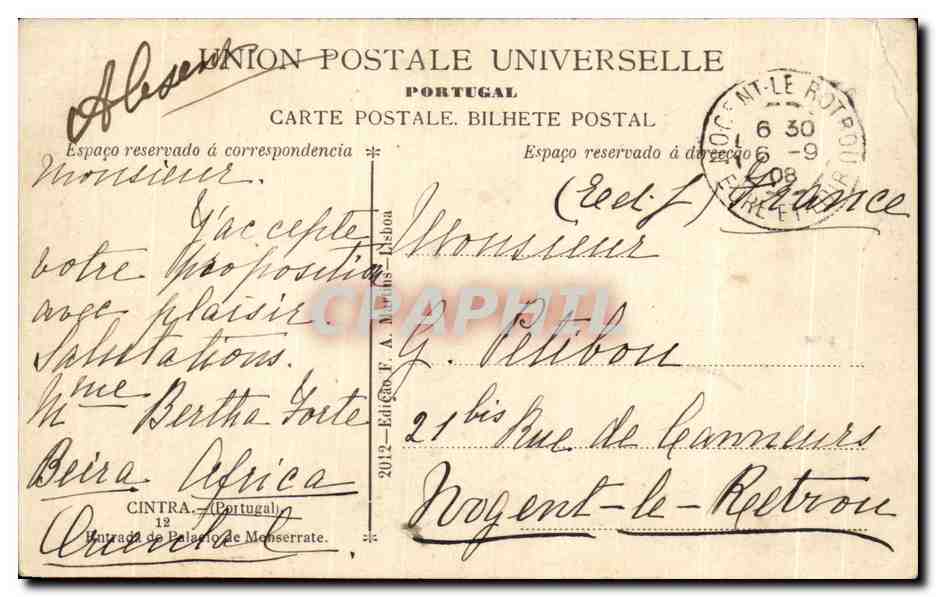 Absent
UNION POSTALE UNIVERSELLE
PORTUGAL
CARTE POSTALE. BILHETE POSTAL
Espaço reservado á correspondencia
Espaço reservado á direcção
NOGENT-LE ROTROU
6 30
6 -9
08
EURE-ET-LOIR
Monsieur.
J'accepte
votre proposition
avec plaisir.
Salutations.
Mme Bertha Forte
Beira Africa
Oriental.
CINTRA.—(Portugal)
12
Entrada do Palacio de Monserrate.
2012—Edição F. A. Martins—Lisboa
France
Monsieur
G. Petibou
21 bis Rue de Tanneurs
Nogent-le-Retrou
CPAPHIL